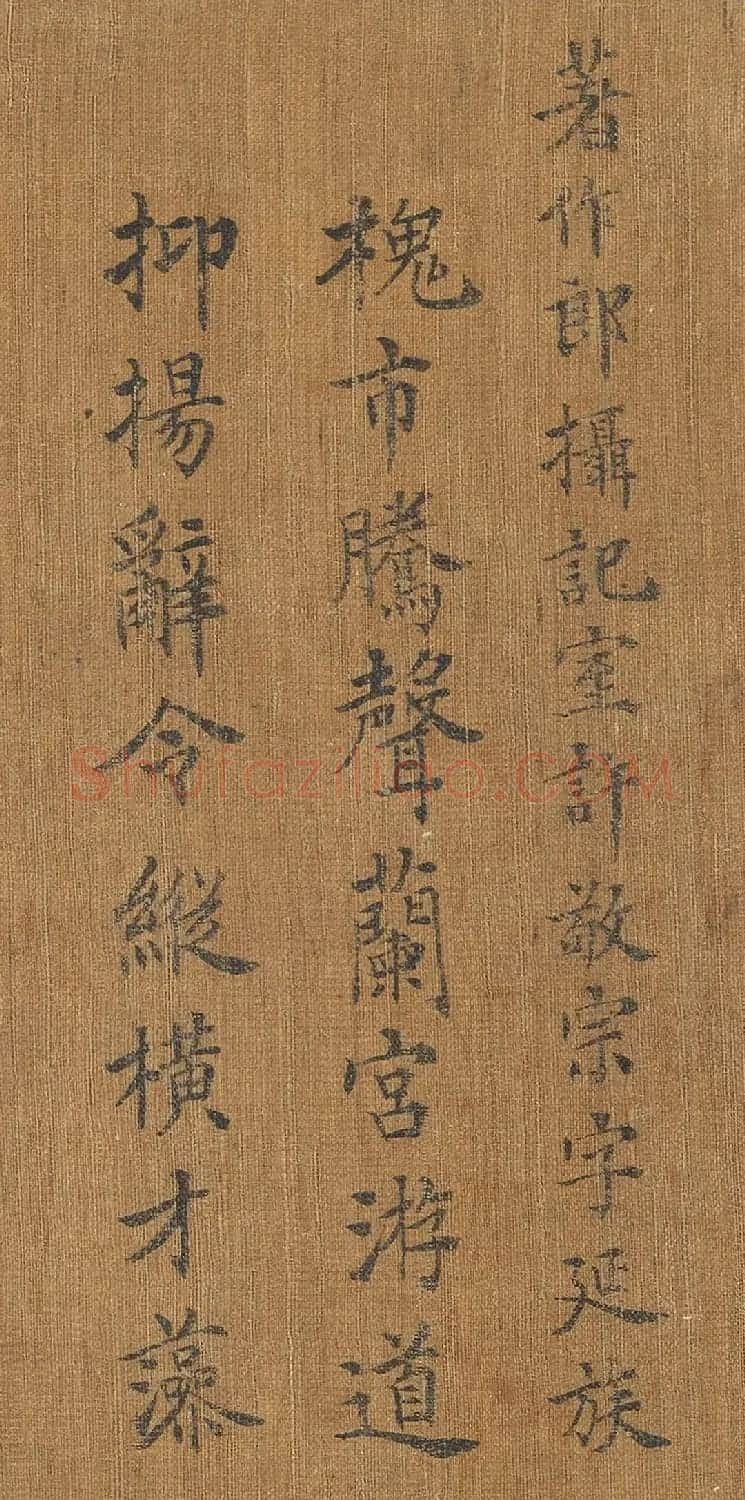 著作郎攝記室許敬宗字延族
槐市騰聲蘭宮游道
抑揚辭令縱橫才藻
Shufaziliao.com